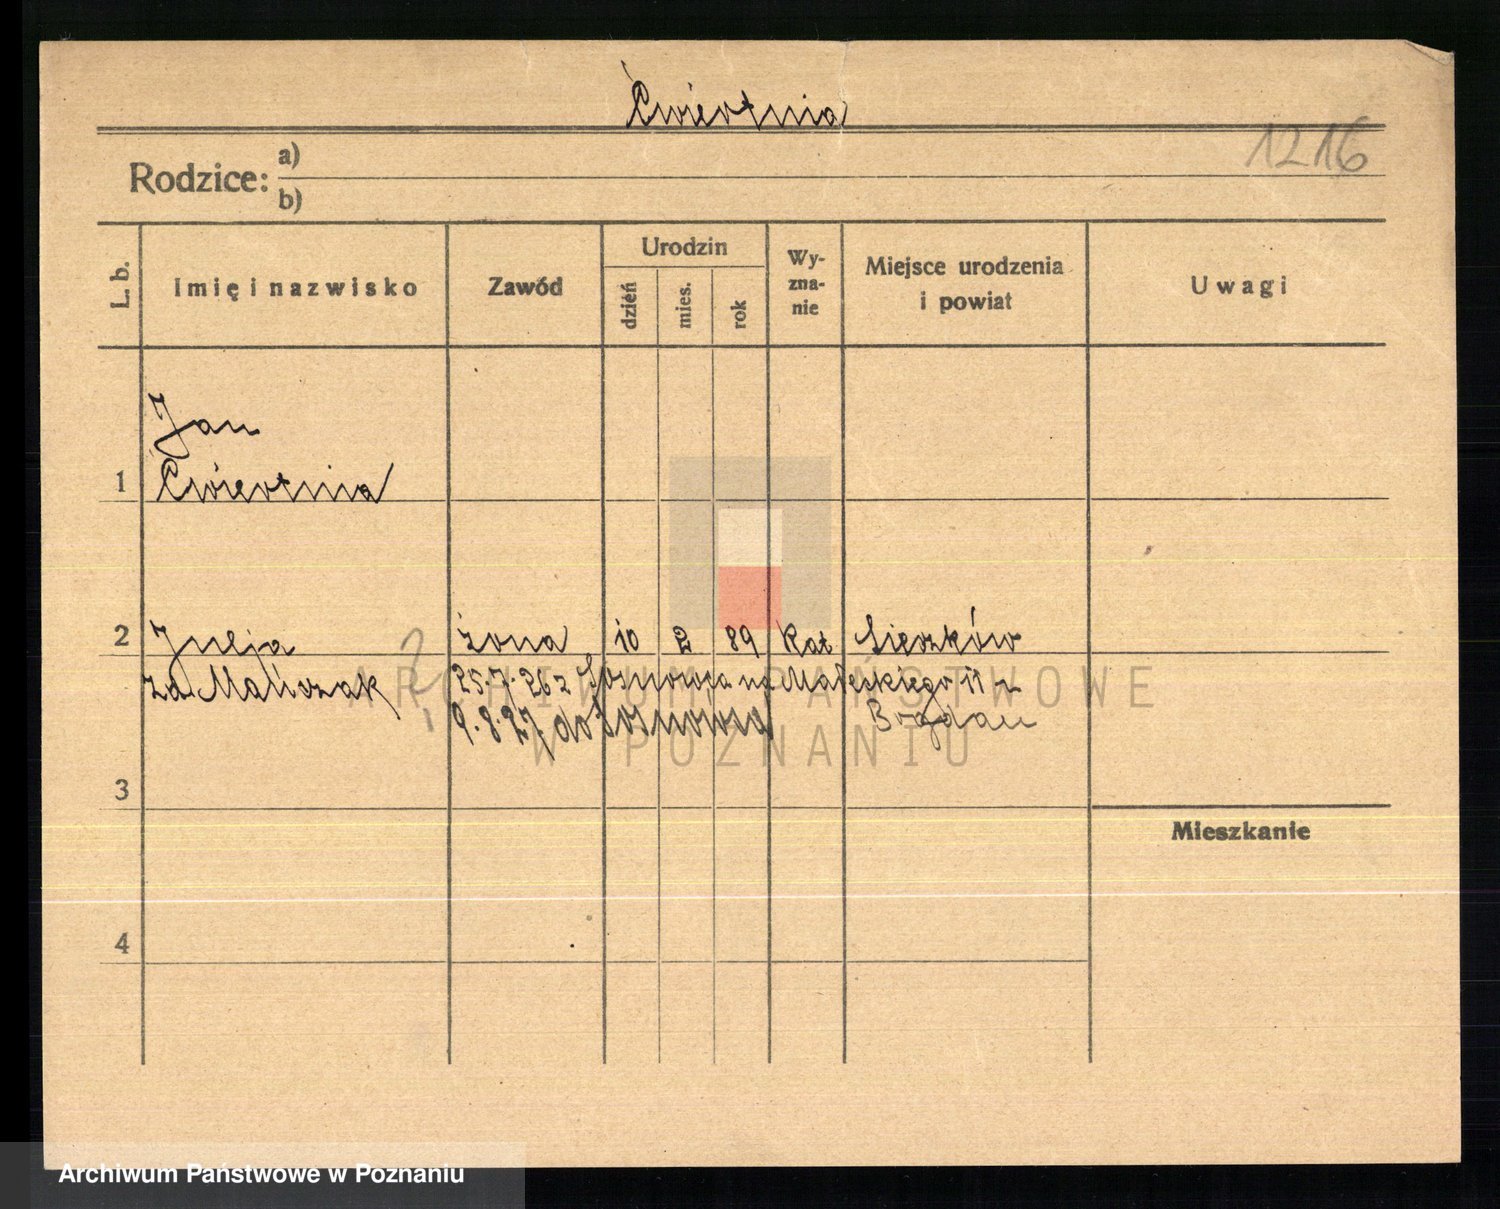 Ćwiertnia
1216
Rodzice: a)
b)
L. b.
Imię i nazwisko
Zawód
Urodzin
dzień
mies.
rok
Wy-
zna-
nie
Miejsce urodzenia
i powiat
Uwagi
Jan
1 Ćwiertnia
2 Julja żona 10 2 89 Kat Sięczków
za Malirzak ? 25.7.26 z Sosnowca na Małeckiego 11 z
9.8.27. do Sosnowca Bogdan
3
Mieszkanie
4
ARCHIWUM PAŃSTWOWE
W POZNANIU
Archiwum Państwowe w Poznaniu